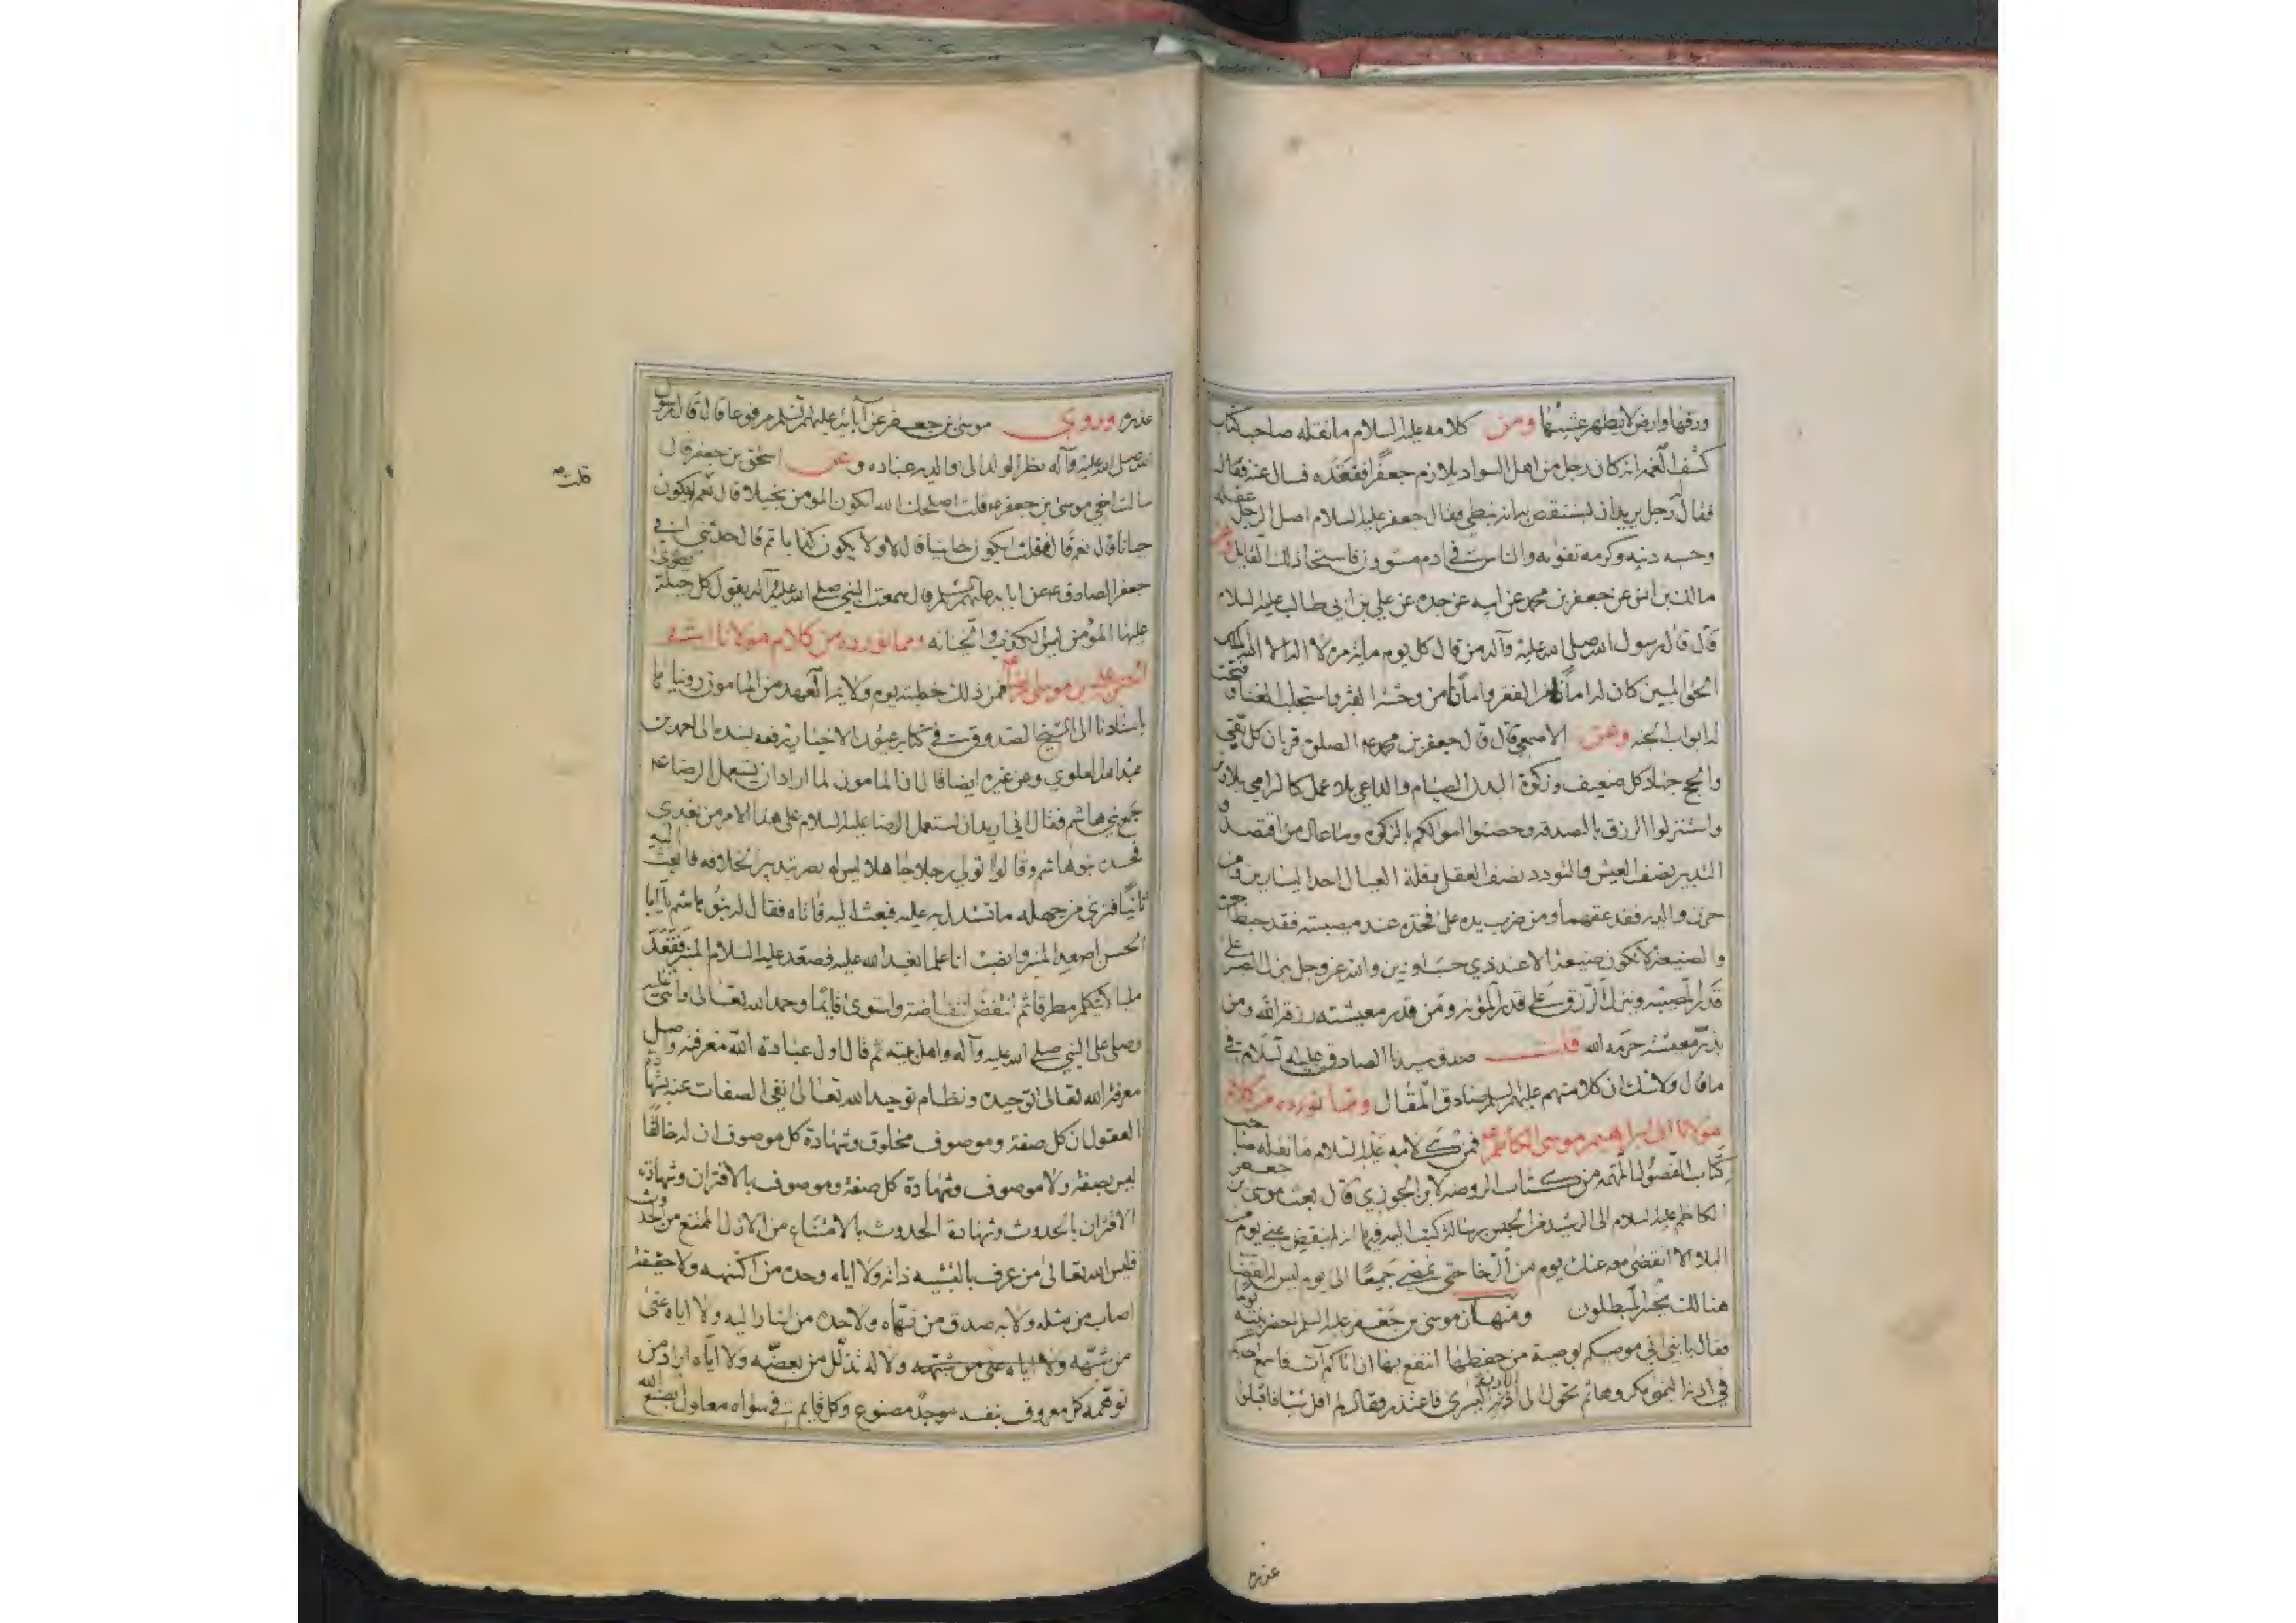 ورقها وارض لا يظهر عشبها ومن كلامه عليه السلام ما نقله صاحب كتاب
كشف الغمه انه كان رجل من اهل السواد يلازم جعفرًا ففقده فسال عنه فقال
فقال رجل يريد ان يستنقص به انه نبطي فقال جعفر عليه السلام اصل الرجل عقله
وحسبه دينه وكرمه تقواه والناس في ادم مستوون فاستحيا ذلك القايل وعن
مالك بن انس عن جعفر بن محمد عن ابيه عن جده عن علي بن ابي طالب عليه السلام
قال قال رسول الله صلى الله عليه وآله من قال كل يوم مائة مرة لا اله الا الله الملك
الحق المبين كان له امانًا من الفقر وامانًا من وحشة القبر واستجلب الغنا وفتحت
له ابواب الجنه وعن الاصمعي قال قال جعفر بن محمد ع الصلوة قربان كل تقي
والحج جهاد كل ضعيف وزكوة البدن الصيام والداعي بلا عمل كالرامي بلا وتر
واستنزلوا الرزق بالصدقه وحصنوا اموالكم بالزكوة وما عال من اقتصد و
التدبير نصف العيش والتودد نصف العقل وقلة العيال احد اليسارين ومن
حزن والديه فقد عقهما ومن ضرب يده على فخذه عند مصيبته فقد حبط اجره
والصنيعة لا تكون صنيعة الا عند ذي حسب او دين والله عز وجل ينزل الصبر على
قدر المصيبه وينزل الرزق على قدر المؤنه ومن قدر معيشته رزقه الله ومن
بذر معيشته حرمه الله قلت صدق سيدنا الصادق عليه السلام في
ما قال ولا شك ان كلامنهم عليهم السلم صادق المقال ومما نورده من كلام
مولانا ابي ابراهيم موسى الكاظم ع فمن كلامه عليه السلام ما نقله صاحب
كتاب الفصول المهمه من كتاب الروضه لابن الجوزي قال بعث موسى بن جعفر
الكاظم عليه السلام الى الرشيد من الحبس برسالة كتب اليه فيها انه لم ينقض عني يوم من
البلاء الا انقضى معه عنك يوم من الرخا حتى نمضي جميعًا الى يوم ليس له انقضا
هنالك يخسر المبطلون ومنها ان موسى بن جعفر عليه السلم احضر بنيه يومًا
فقال يا بني اني موصيكم بوصية من حفظها انتفع بها ان اتاكم آت فاسمع احدكم
في اذنه اليمنى مكروها ثم تحول الى الاذن اليسرى فاعتذر فقال لم اقل شيئا فاقبلوا
عذره
عذره وروي موسى بن جعفر عن آبائه عليهم السلم مرفوعا قال قال رسول
الله صلى الله عليه وآله نظر الولد الى والديه عباده وعن اسحق بن جعفر قال
سالت اخي موسى بن جعفر ع قلت اصلحك الله ايكون المومن بخيلا قال نعم فقلت ايكون
قلت
جبانا قال نعم قال فقلت ايكون خاينا قال لا ولا يكون كذابا ثم قال حدثني ابي
جعفر الصادق ع عن ابايه عليهم السلم قال سمعت النبي صلى الله عليه وآله يقول كل خلة يطوى
عليها المؤمن ليس الكذب والخيانه ومما نورده من كلام مولانا ابي
الحسن علي بن موسى الرضا ع فمن ذلك خطبته يوم ولاية العهد من المامون روينا
باسنادنا الى الشيخ الصدوق في كتاب عيون الاخبار يرفعه بسنده الى احمد بن
عبد الله العلوي وعن غيره ايضا قال ان المامون لما اراد ان يستعمل الرضا ع
جمع بني هاشم فقال اني اريد ان استعمل الرضا عليه السلام على هذا الامر من بعدي
فحسده بنو هاشم وقالوا تولي رجلا جاهلا ليس له بصر بتدبير الخلافه فابعث اليه
ياتينا فترى من جهله ما تستدل به عليه فبعث اليه فاتاه فقال له بنو هاشم يا ابا
الحسن اصعد المنبر وانصب لنا علما نعبد الله عليه فصعد عليه السلام المنبر فقعد
مليا لا يتكلم مطرقا ثم انتفض انتفاضة واستوى قايمًا وحمد الله تعالى واثنى عليه
وصلى على النبي صلى الله عليه وآله واهل بيته ثم قال اول عبادة الله معرفته واصل
معرفة الله تعالى توحيده ونظام توحيد الله تعالى نفي الصفات عنه بشهادة
العقول ان كل صفة وموصوف مخلوق وشهادة كل موصوف ان له خالقًا
ليس بصفة ولا موصوف وشهادة كل صفة وموصوف بالاقتران وشهادة
الاقتران بالحدوث وشهادة الحدوث بالامتناع من الازل الممتنع من الحدوث
فليس الله تعالى من عرف بالتشبيه ذاته ولا اياه وحده من اكتنهه ولا حقيقة
اصاب من مثله ولا به صدق من نهاه ولا صمده من اشار اليه ولا اياه عنى
من شبهه ولا اياه عنى من شبهه ولا له تذلل من بعضه ولا اياه اراد من
توهمه كل معروف بنفسه مصنوع وكل قايم في سواه معلول بصنع الله